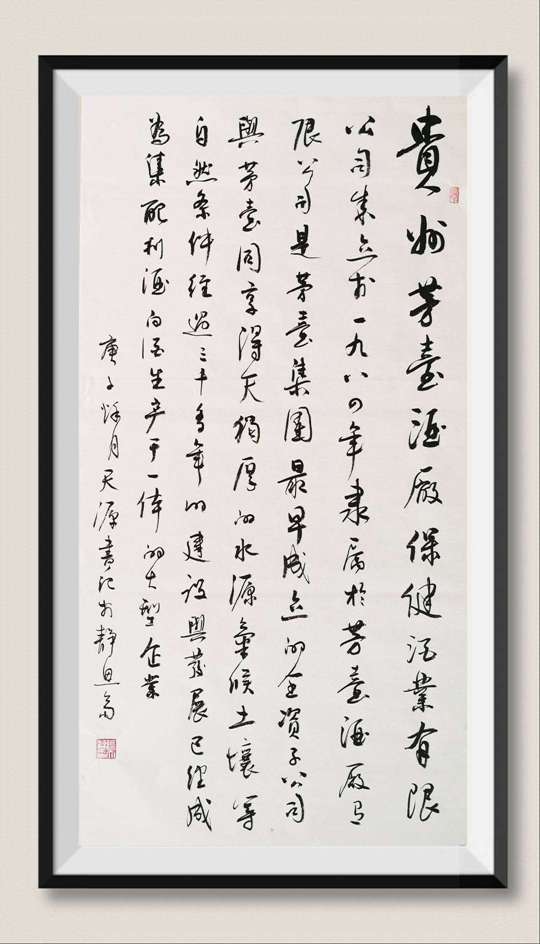 貴州茅臺酒廠保健酒業有限
公司成立於一九八四年隸屬於茅臺酒廠有
限公司是茅臺集團最早成立的全資子公司
與茅臺同享得天獨厚的水源氣候土壤等
自然条件經過三十多年的建設與發展已經成
為集配制酒白酒生産于一体的大型企業
庚子月天源書於靜思齋